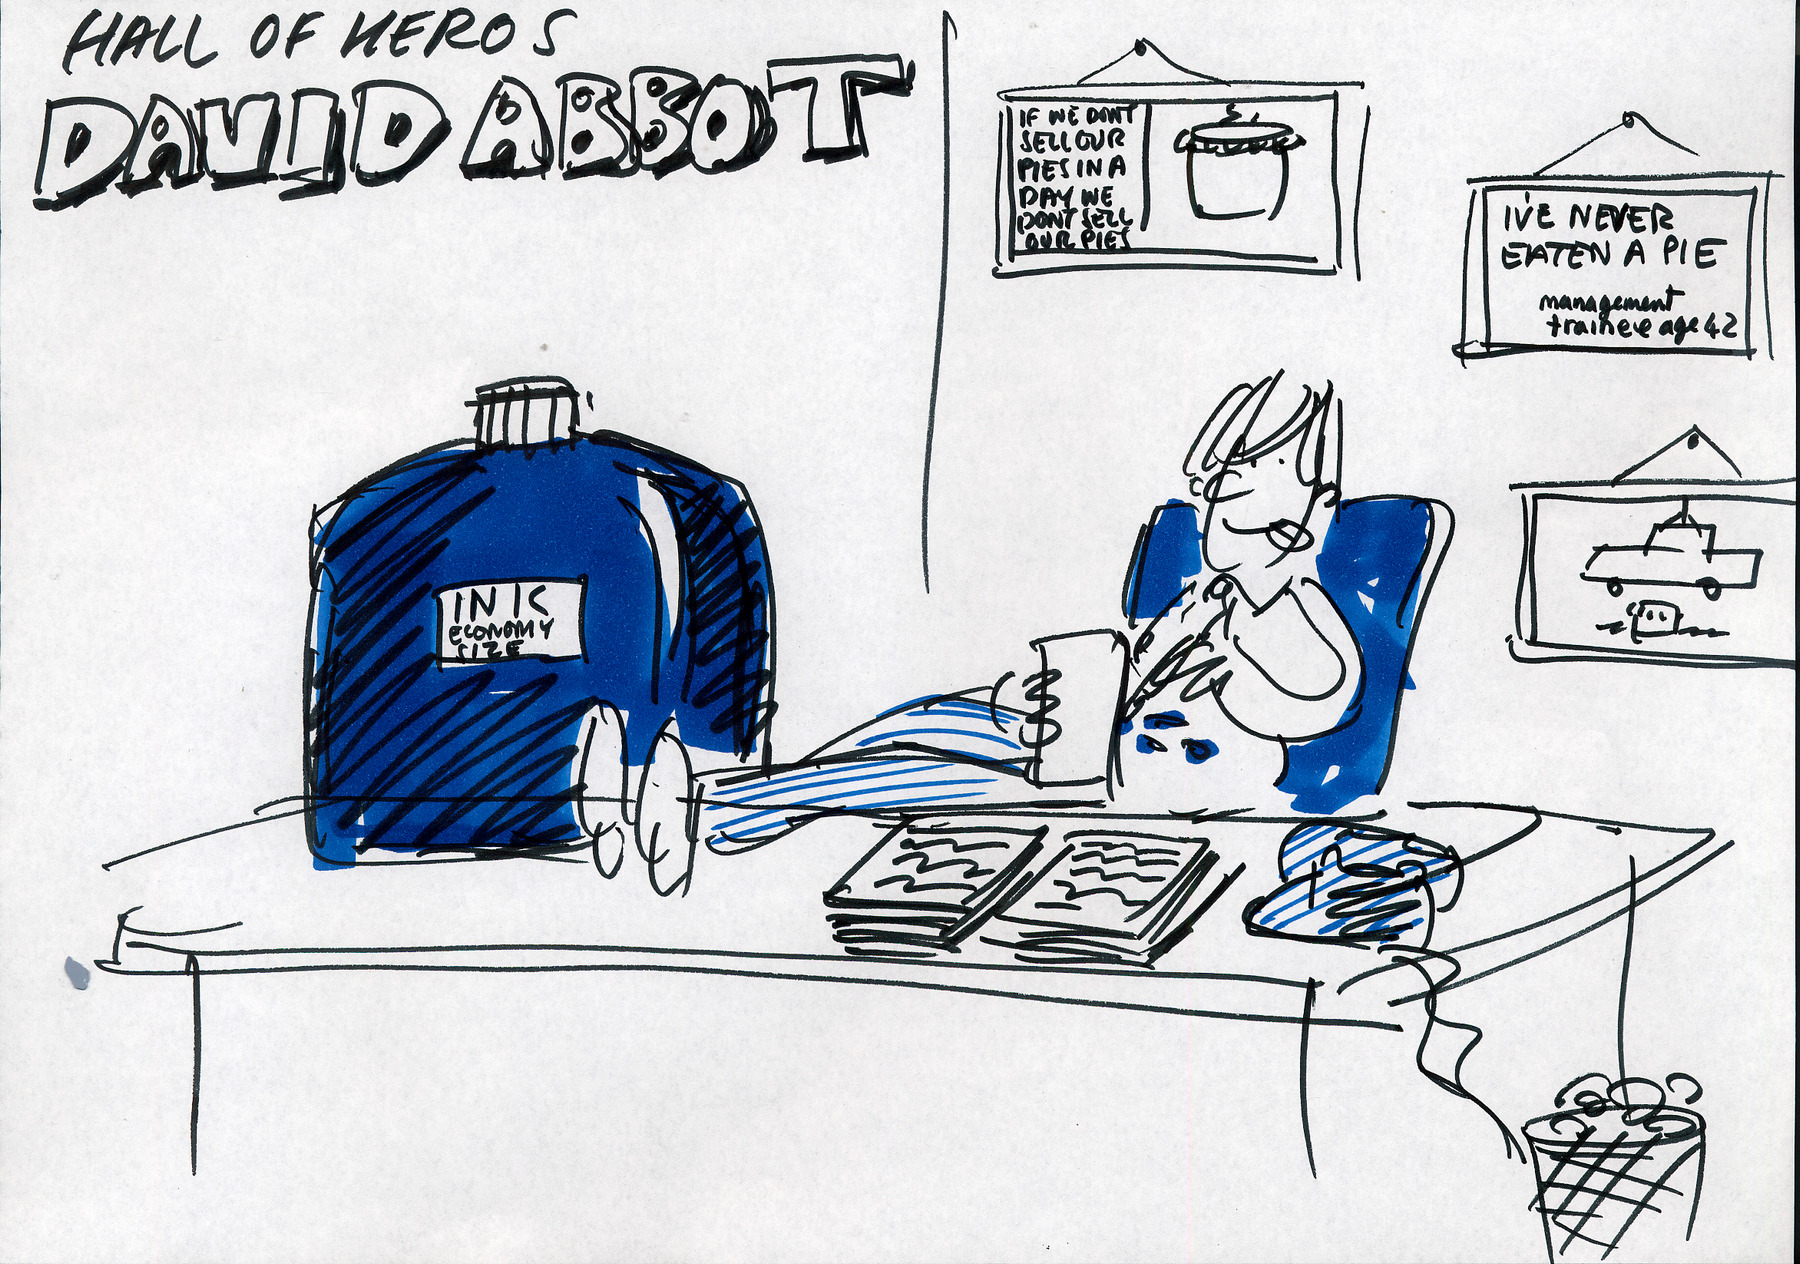 HALL OF HEROS
DAVID ABBOT
IF WE DONT
SELL OUR
PIES IN A
DAY WE
DONT SELL
OUR PIES
I'VE NEVER
EATEN A PIE
management
trainee age 42
INK
ECONOMY
SIZE